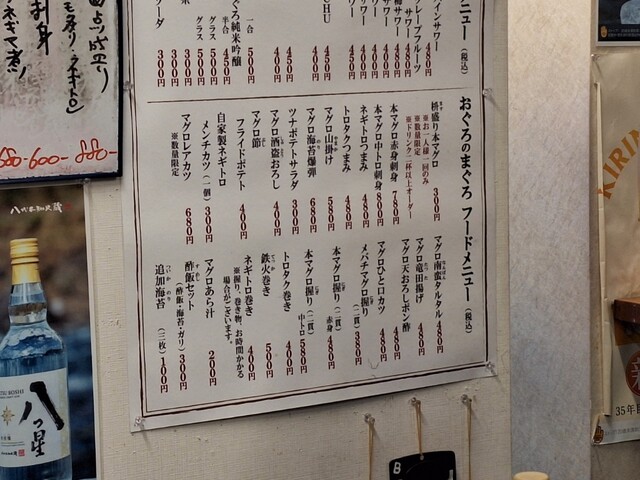 メニュー（税込）
450円
480円
400円
450円
400円
450円
ぐろ純米吟醸
一合
500円
半合
グラス
500円
グラス
300円
300円
300円
おぐろのまぐろ フードメニュー（税込）
桝盛り本マグロ 300円
※お一人様一回のみ
※ドリンク二杯以上オーダー
※数量限定
本マグロ赤身刺身 780円
本マグロ中トロ刺身 800円
ネギトロつまみ 480円
トロタクつまみ 480円
マグロ山掛け 580円
マグロ海苔爆弾 680円
ツナポテトサラダ 300円
マグロ酒盗おろし 480円
マグロ節
フライドポテト 400円
自家製ネギトロ
メンチカツ（一個）300円
マグロレアカツ 680円
※数量限定
マグロ南蛮タルタル 480円
マグロ竜田揚げ 480円
マグロ天おろしポン酢 480円
マグロひとロカツ 480円
メバチマグロ握り（二貫）380円
本マグロ握り（二貫）赤身 480円
本マグロ握り（二貫）中トロ 580円
トロタク巻き 400円
鉄火巻き 500円
ネギトロ巻き 400円
※握り、巻き物、お時間かかる
場合がございます。
マグロあら汁 200円
酢飯セット
（酢飯・海苔・ガリ）300円
追加海苔（三枚）100円
刺身
ネギマ煮
680- 600- 880-
八つ星
KIRIN
35年
B